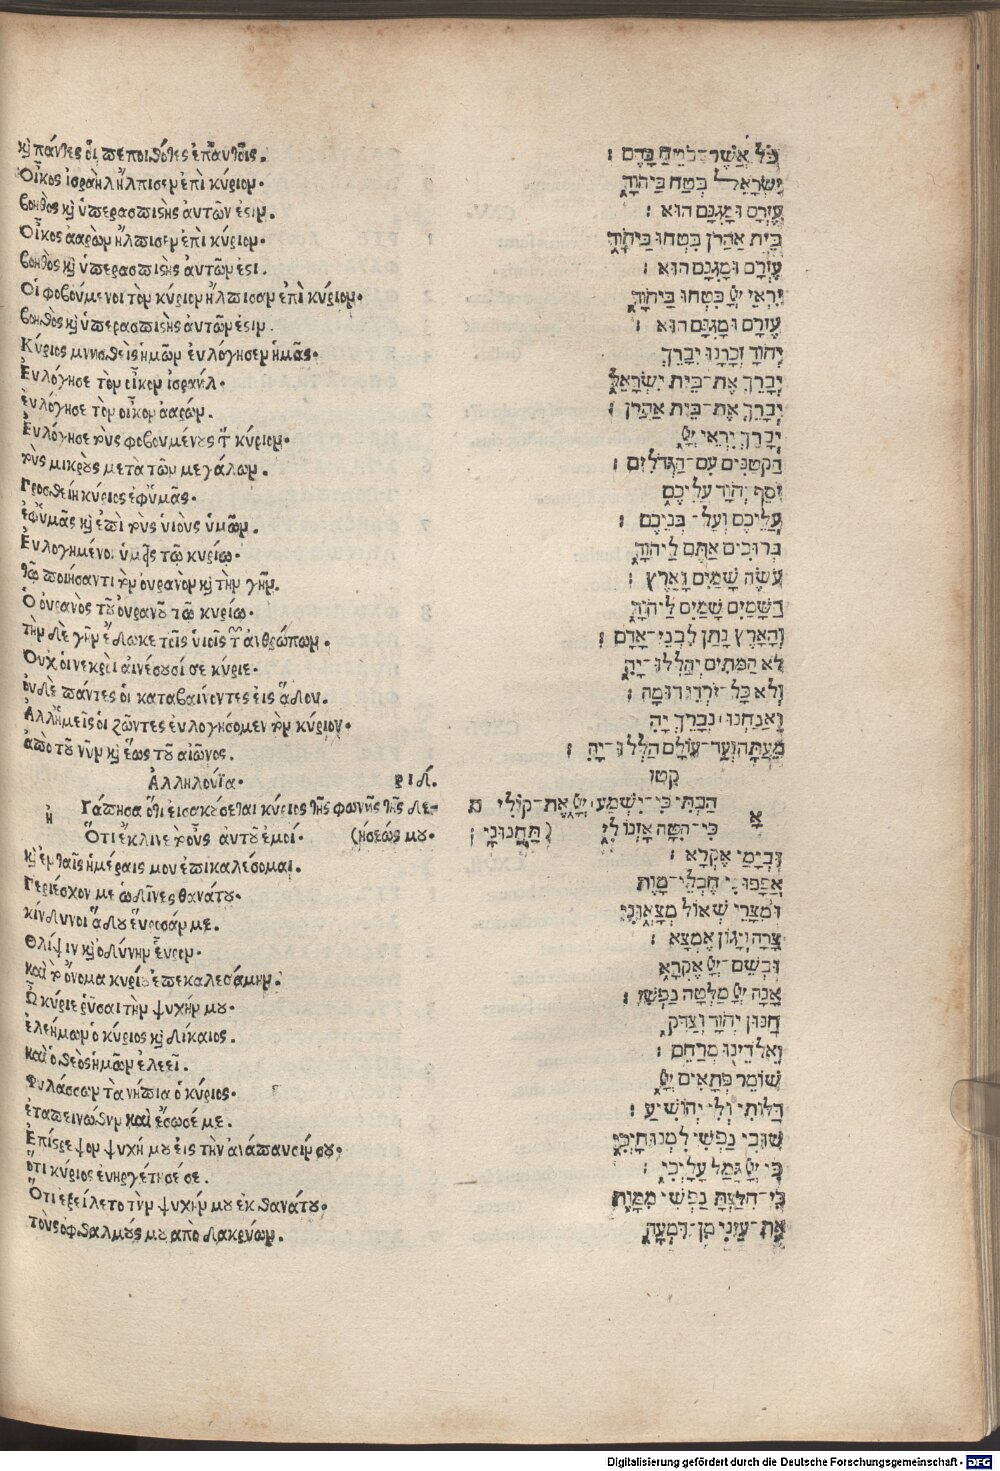 κỳ πάντες ὁι πεποιθότες ἐπ' αυτοῖς.
Ὁῖκος ἰσραὴλ ἤλπισεν ἐπὶ κύριον.
βοηθὸς κỳ ὑπερασπιστὴς ἀυτῶν ἐστιν.
Ὁῖκος ἀαρὼν ἤλπισεν ἐπὶ κύριον.
βοηθὸς κỳ ὑπερασπιστὴς ἀυτῶν ἐστι.
Ὁι φοβούμενοι τὸν κύριον ἤλπισαν ἐπὶ κύριον.
βοηθὸς κỳ ὑπερασπιστὴς ἀυτῶν ἐστιν.
Κύριος μνησθεὶς ἡμῶν ἐυλόγησεν ἡμᾶς.
Ἐυλόγησε τὸν οἶκον ἰσραήλ.
ἐυλόγησε τὸν οἶκον ἀαρών.
Ἐυλόγησε τοὺς φοβουμένους τὸν κύριον.
τοὺς μικροὺς μετὰ τῶν μεγάλων.
Προσθείη κύριος ἐφ' ὑμᾶς.
ἐφ' ὑμᾶς κỳ ἐπὶ τοὺς ὑιοὺς ὑμῶν.
Ἐυλογημένοι ὑμεῖς τῷ κυρίῳ.
τῷ ποιήσαντι τὸν ὀυρανὸν κỳ τὴν γῆν.
Ὁ ὀυρανὸς τοῦ ὀυρανοῦ τῷ κυρίῳ.
τὴν δὲ γῆν ἔδωκε τοῖς ὑιοῖς τῶν ἀνθρώπων.
Ὀυχ ὁι νεκροὶ αἰνέσουσί σε κύριε.
ὀυδὲ πάντες ὁι καταβαίνοντες ἐις ᾅδου.
Ἀλλ' ἡμεῖς ὁι ζῶντες ἐυλογήσομεν τὸν κύριον.
ἀπὸ τοῦ νῦν κỳ ἕως τοῦ αἰῶνος.
Ἀλληλούϊα. ριδ.
Γάπησα ὅτι ἐισακούσεται κύριος τῆς φωνῆς τῆς δε-
Ὅτι ἔκλινε τὸ οὖς ἀυτοῦ ἐμοί. (ήσεώς μου.
κỳ ἐν ταῖς ἡμέραις μου ἐπικαλέσομαι.
Περιέσχον με ὠδῖνες θανάτου.
κίνδυνοι ᾅδου ἕυροσάν με.
Θλίψιν κỳ ὀδύνην ἕυρον.
καὶ τὸ ὄνομα κυρίου ἐπεκαλεσάμην.
Ὦ κύριε ῥῦσαι τὴν ψυχήν μου.
ἐλεήμων ὁ κύριος κỳ δίκαιος.
καὶ ὁ θεὸς ἡμῶν ἐλεεῖ.
Φυλάσσων τὰ νήπια ὁ κύριος.
ἐταπεινώθην καὶ ἔσωσέ με.
Ἐπίστρεψον ψυχή μου ἐις τὴν ἀνάπαυσίν σου.
ὅτι κύριος ἐυηργέτησέ σε.
Ὅτι ἐξείλετο τὴν ψυχήν μου ἐκ θανάτου.
τοὺς ὀφθαλμούς μου ἀπὸ δακρύων.
כֹּל אֲשֶׁר־בֹּטֵחַ בָּהֶם :
יִשְׂרָאֵל בְּטַח בַּיהוָה
עֶזְרָם וּמָגִנָּם הוּא :
בֵּית אַהֲרֹן בִּטְחוּ בַיהוָה
עֶזְרָם וּמָגִנָּם הוּא :
יִרְאֵי יְיָ בִּטְחוּ בַּיהוָה
עֶזְרָם וּמָגִנָּם הוּא :
יְהוָה זְכָרָנוּ יְבָרֵךְ
יְבָרֵךְ אֶת־בֵּית יִשְׂרָאֵל
יְבָרֵךְ אֶת־בֵּית אַהֲרֹן :
יְבָרֵךְ יִרְאֵי יְיָ
הַקְּטַנִּים עִם־הַגְּדֹלִים :
יֹסֵף יְהוָה עֲלֵיכֶם
עֲלֵיכֶם וְעַל־בְּנֵיכֶם :
בְּרוּכִים אַתֶּם לַיהוָה
עֹשֵׂה שָׁמַיִם וָאָרֶץ :
הַשָּׁמַיִם שָׁמַיִם לַיהוָה
וְהָאָרֶץ נָתַן לִבְנֵי־אָדָם :
לֹא הַמֵּתִים יְהַלְלוּ־יָהּ
וְלֹא כָּל־יֹרְדֵי דוּמָה :
וַאֲנַחְנוּ נְבָרֵךְ יָהּ
מֵעַתָּה וְעַד־עוֹלָם הַלְלוּ־יָהּ :
קטו
אָהַבְתִּי כִּי־יִשְׁמַע יְיָ אֶת־קוֹלִי
כִּי־הִטָּה אָזְנוֹ לִי (תַּחֲנוּנָי :
וּבְיָמַי אֶקְרָא :
אֲפָפוּנִי חֶבְלֵי־מָוֶת
וּמְצָרֵי שְׁאוֹל מְצָאוּנִי
צָרָה וְיָגוֹן אֶמְצָא :
וּבְשֵׁם־יְיָ אֶקְרָא
אָנָּה יְיָ מַלְּטָה נַפְשִׁי :
חַנּוּן יְהוָה וְצַדִּיק
וֵאלֹהֵינוּ מְרַחֵם :
שׁוֹמֵר פְּתָאִים יְיָ
דַּלּוֹתִי וְלִי יְהוֹשִׁיעַ :
שׁוּבִי נַפְשִׁי לִמְנוּחָיְכִי
כִּי יְיָ גָּמַל עָלָיְכִי :
כִּי־חִלַּצְתָּ נַפְשִׁי מִמָּוֶת
אֶת־עֵינִי מִן־דִּמְעָה
Digitalisierung gefördert durch die Deutsche Forschungsgemeinschaft - DFG